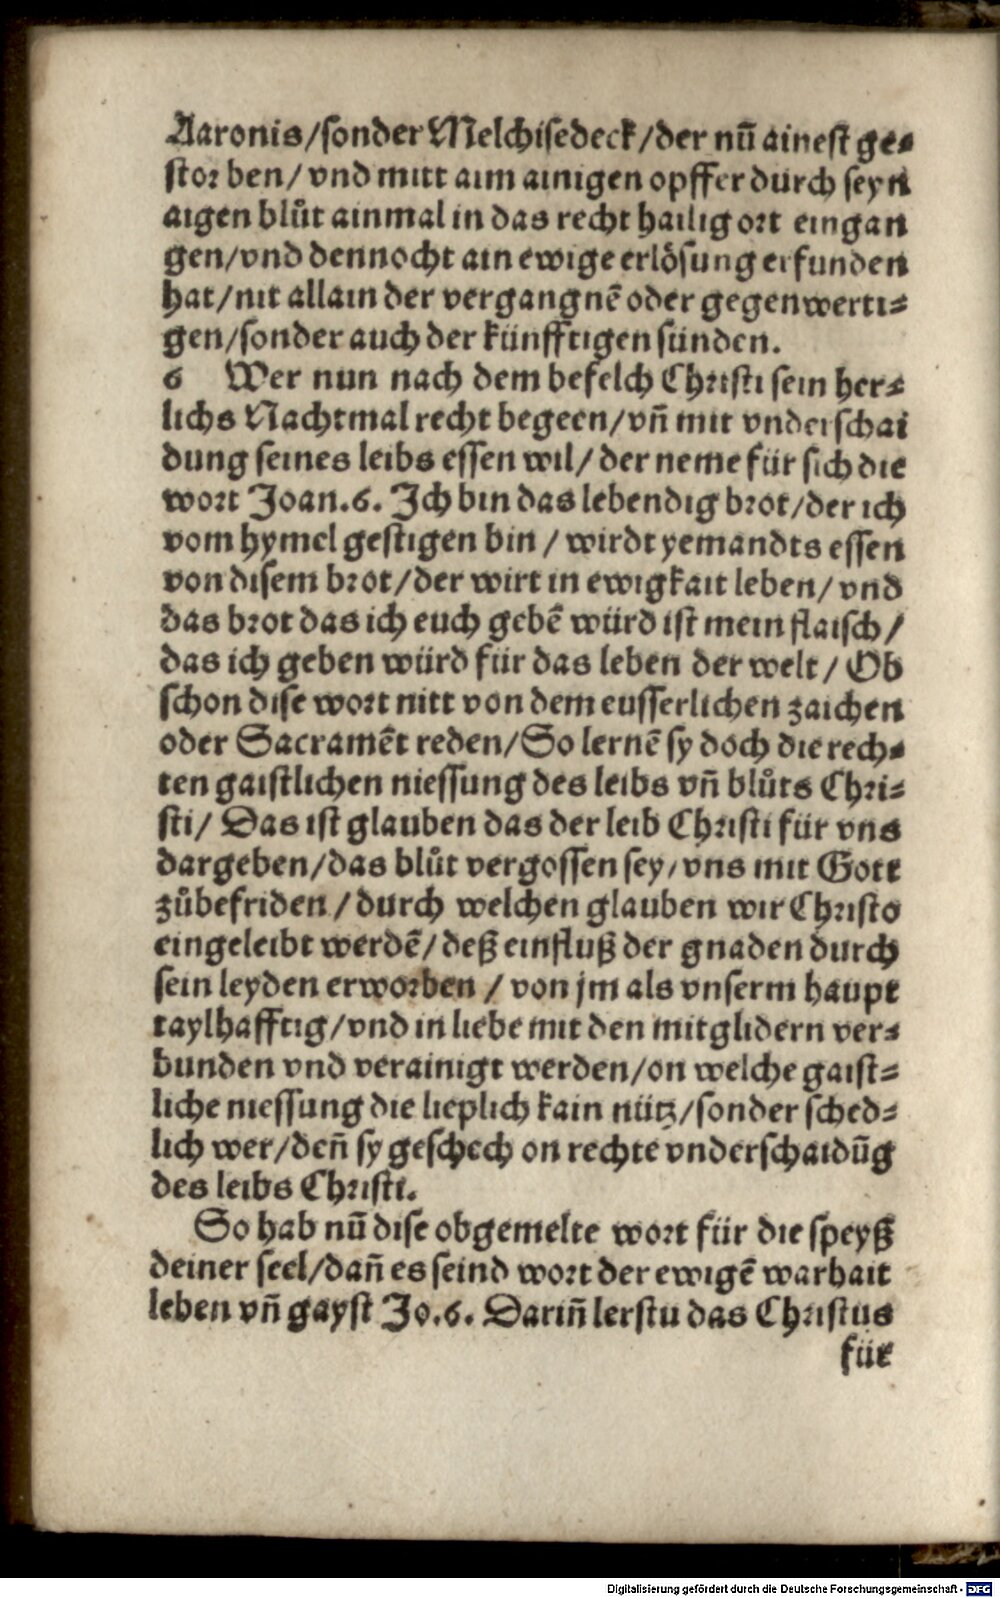 Aaronis/sonder Melchisedeck/der nū ainest ge-
storben/ vnd mitt aim ainigen opffer durch seyn
aigen blůt ainmal in das recht hailig ort eingan
gen/vnd dennocht ain ewige erlösung erfunden
hat/nit allain der vergangnē oder gegenwerti-
gen/sonder auch der künfftigen sünden.
6 Wer nun nach dem befelch Christi sein her-
lichs Nachtmal recht begeen/vn̄ mit vnderschai
dung seines leibs essen wil/ der neme für sich die
wort Joan.6. Ich bin das lebendig brot/der ich
vom hymel gestigen bin / wirdt yemandts essen
von disem brot/der wirt in ewigkait leben/ vnd
das brot das ich euch gebē würd ist mein flaisch/
das ich geben würd für das leben der welt/ Ob
schon dise wort nitt von dem eusserlichen zaichen
oder Sacramēt reden/So lernē sy doch die rech-
ten gaistlichen niessung des leibs vn̄ blůts Chri-
sti/ Das ist glauben das der leib Christi für vns
dargeben/das blůt vergossen sey/vns mit Gott
zůbefriden/durch welchen glauben wir Christo
eingeleibt werdē/deß einfluß der gnaden durch
sein leyden erworben / von jm als vnserm haupt
taylhafftig/vnd in liebe mit den mitglidern ver-
bunden vnd verainigt werden/on welche gaist-
liche niessung die lieplich kain nütz/sonder sched-
lich wer/den̄ sy geschech on rechte vnderschaidūg
des leibs Christi.
So hab nū dise obgemelte wort für die speyß
deiner seel/dan̄ es seind wort der ewigē warhait
leben vn̄ gayst Jo.6. Darin̄ lerstu das Christus
für
Digitalisierung gefördert durch die Deutsche Forschungsgemeinschaft - DFG